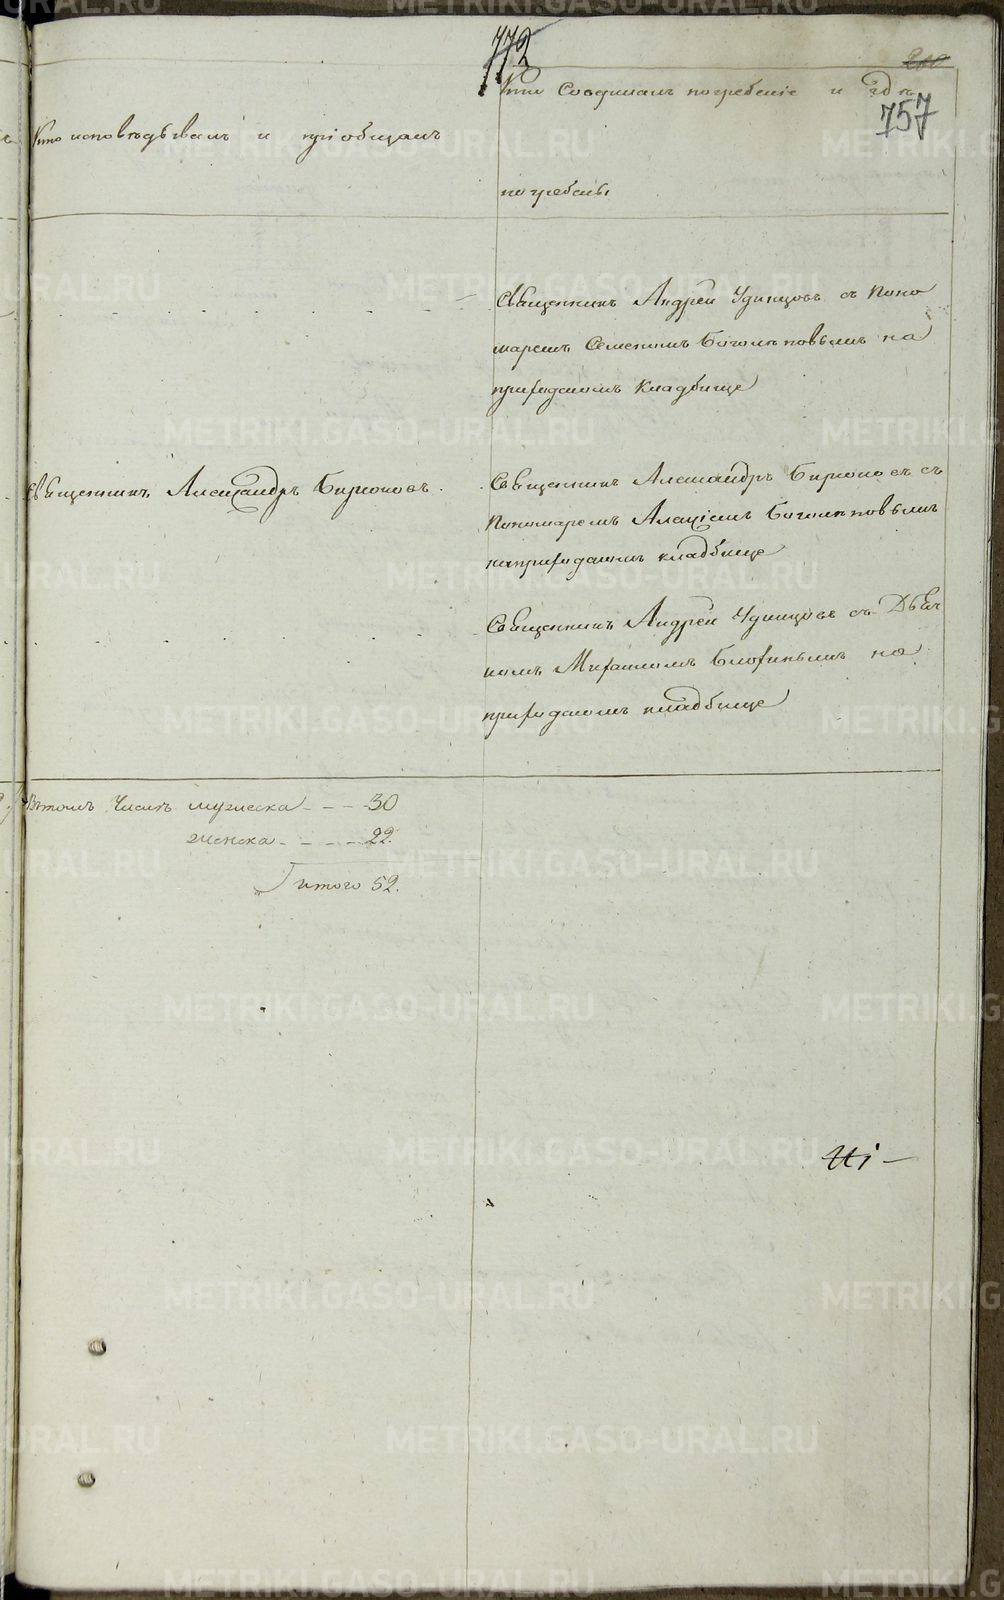 772
757
Кто исповѣдывалъ и пріобщалъ
Кто Совершалъ погребеніе и гдѣ
погребены
Священникъ Андрей Удинцовъ съ Поно
маремъ Семеномъ Боголѣповымъ на
приходскомъ Кладбище
Священникъ Александръ Бирюковъ.
Священникъ Александръ Бирюковъ съ
Пономаремъ Алексіемъ Боголѣповымъ
на приходскомъ кладбище
Священникъ Андрей Удинцовъ съ Дьяч
комъ Михаиломъ на
приходскомъ кладбище
Втомъ Числѣ мужеска - - - 30
женска - - - - 22.
Итого 52.
METRIKI.GASO-URAL.RU